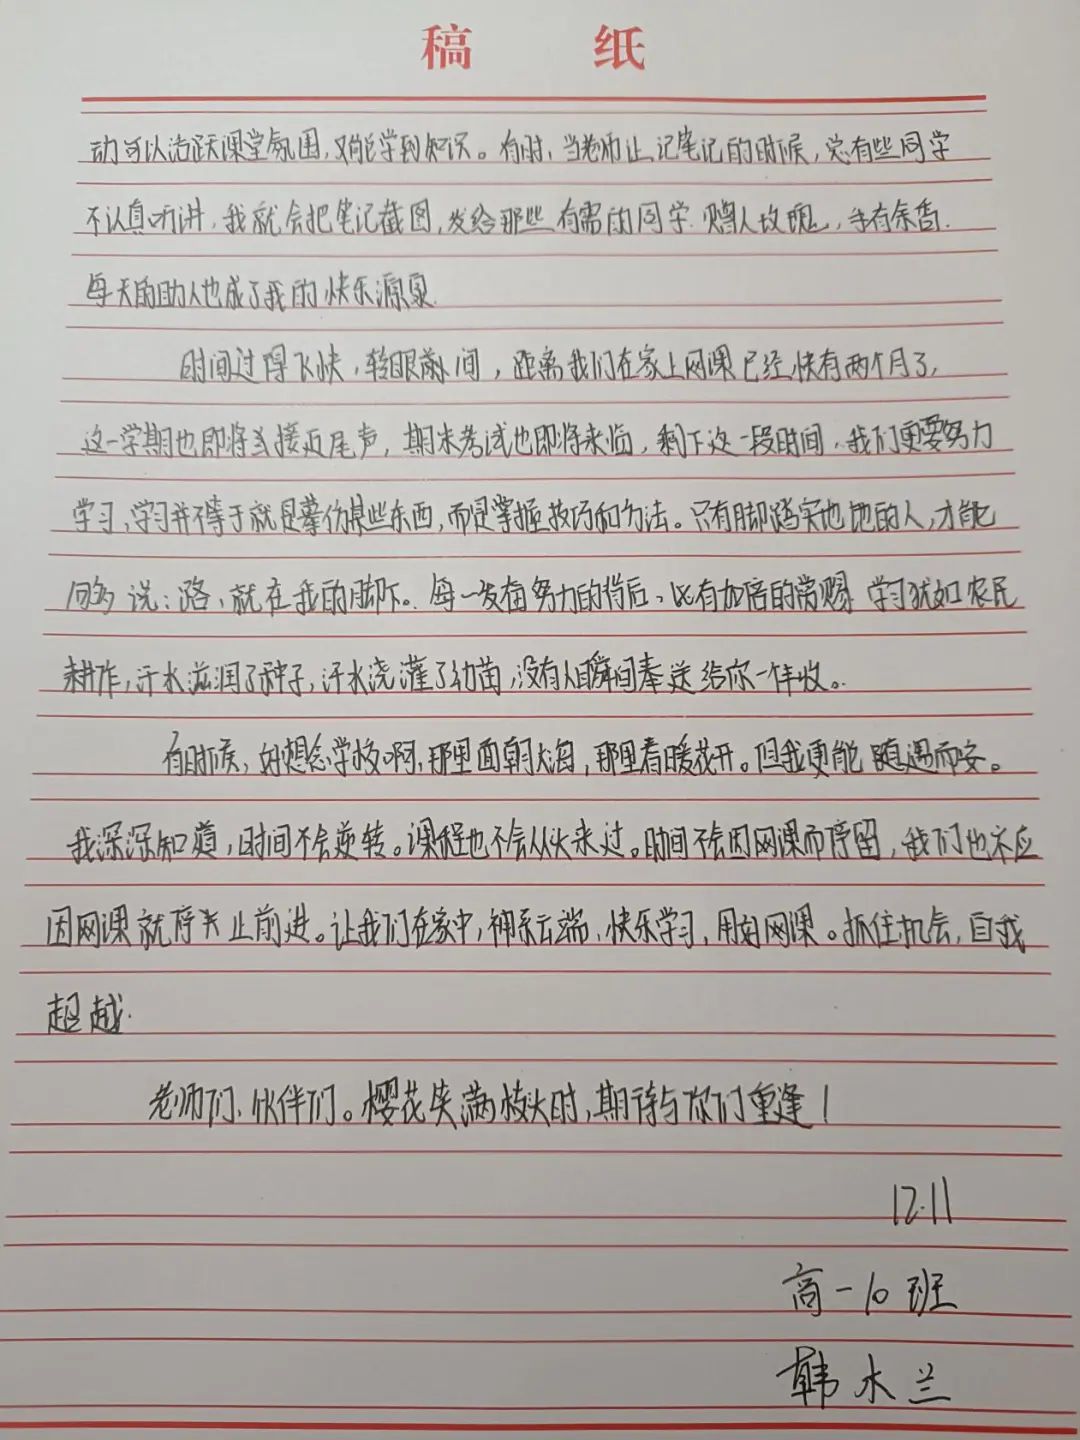 稿 纸
动可以活跃课堂氛围,又能学到知识。有时,当老师让记笔记的时候,总有些同学
不认真听讲,我就会把笔记截图,发给那些有需的同学.赠人玫瑰,手有余香.
每天的助人也成了我的快乐源泉.
时间过得飞快,转眼间,距离我们在家上网课已经快有两个月了,
这一学期也即将接近尾声,期末考试也即将来临,剩下这一段时间,我们更要努力
学习,学习并不等于就是摹仿某些东西,而是掌握技巧和方法。只有脚踏实地的人,才能
够说:路,就在我的脚下。每一发奋努力的背后,必有加倍的赏赐.学习犹如农民
耕作,汗水滋润了种子,汗水浇灌了幼苗,没有人瞬间奉送给你一年收。
有时候,好想念学校啊,那里面朝大海,那里春暖花开。但我更能随遇而安。
我深深知道,时间不会逆转。课程也不会从头来过。时间不会因网课而停留,我们也不应
因网课就停止前进。让我们在家中,神系云端,快乐学习,用好网课。抓住机会,自我
超越.
老师们、伙伴们。樱花笑满枝头时,期待与你们重逢!
12.11
高一10班
韩木兰